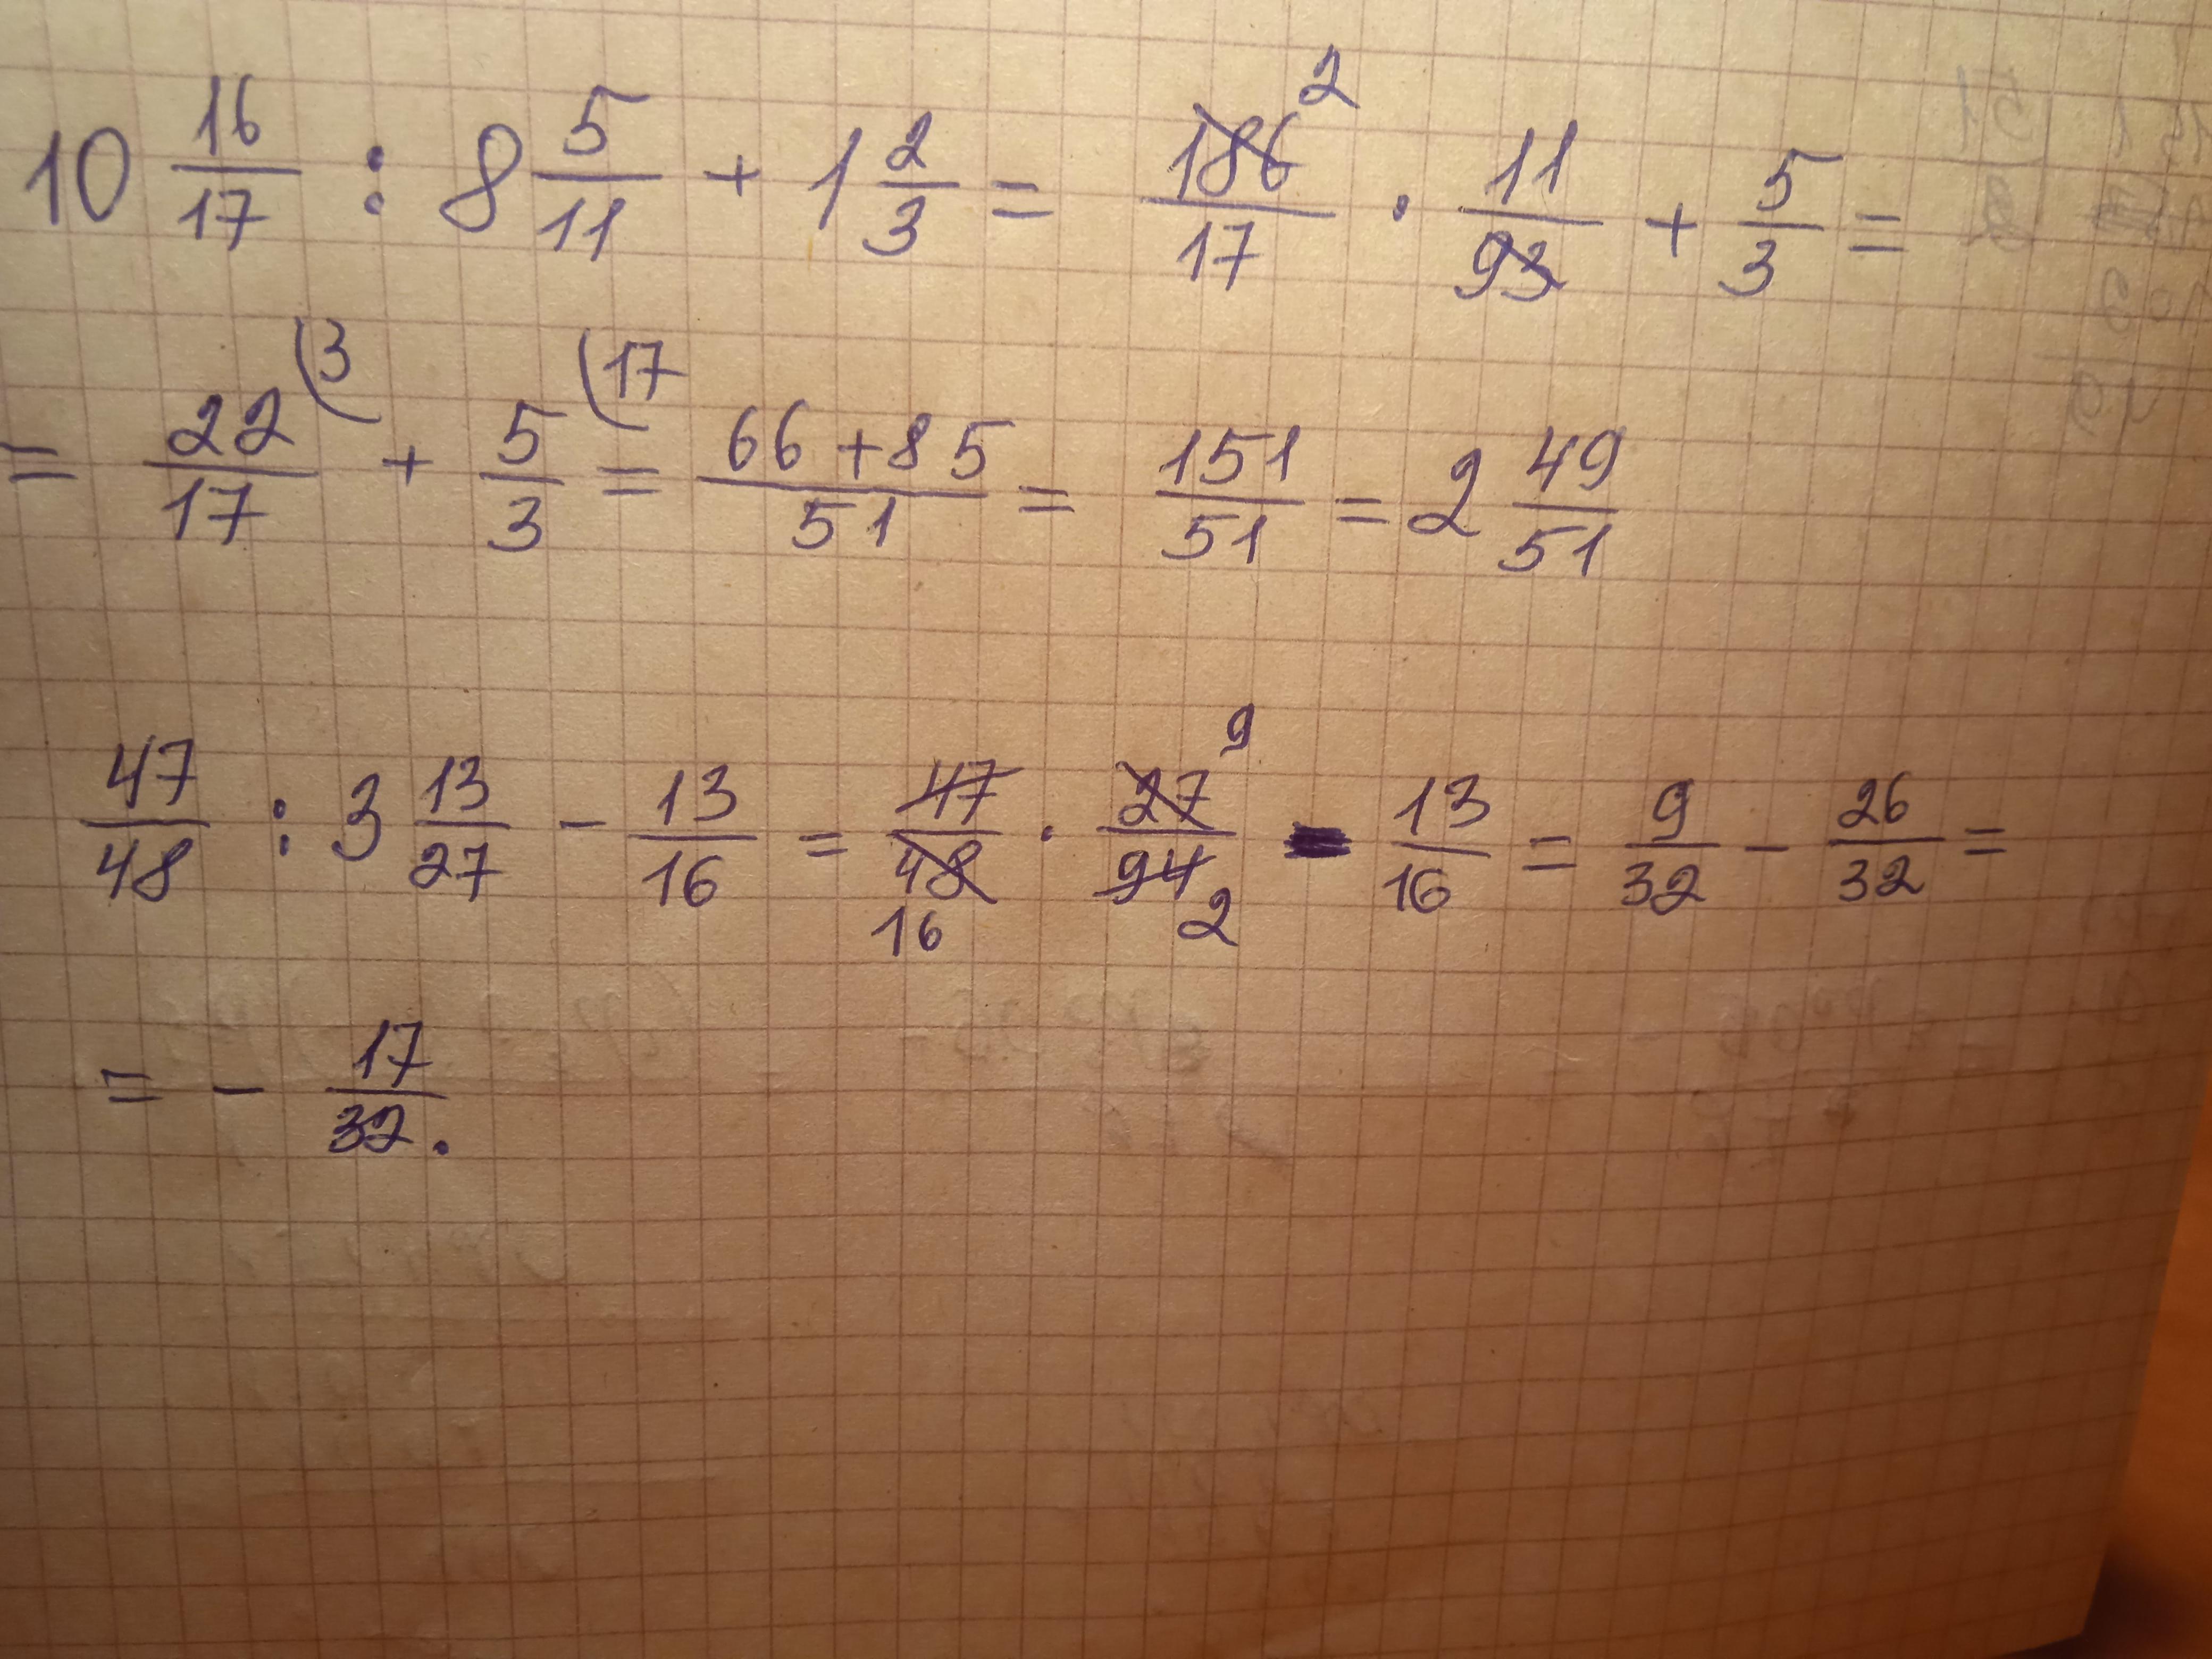 10 16/17 : 8 5/11 + 1 2/3 = 186/17 2 · 11/93 + 5/3 =
= 22/17 (3 + 5/3 (17 = 66+85/51 = 151/51 = 2 49/51
47/48 : 3 13/27 - 13/16 = 47/48 16 · 27/94 9 2 - 13/16 = 9/32 - 26/32 =
= - 17/32.